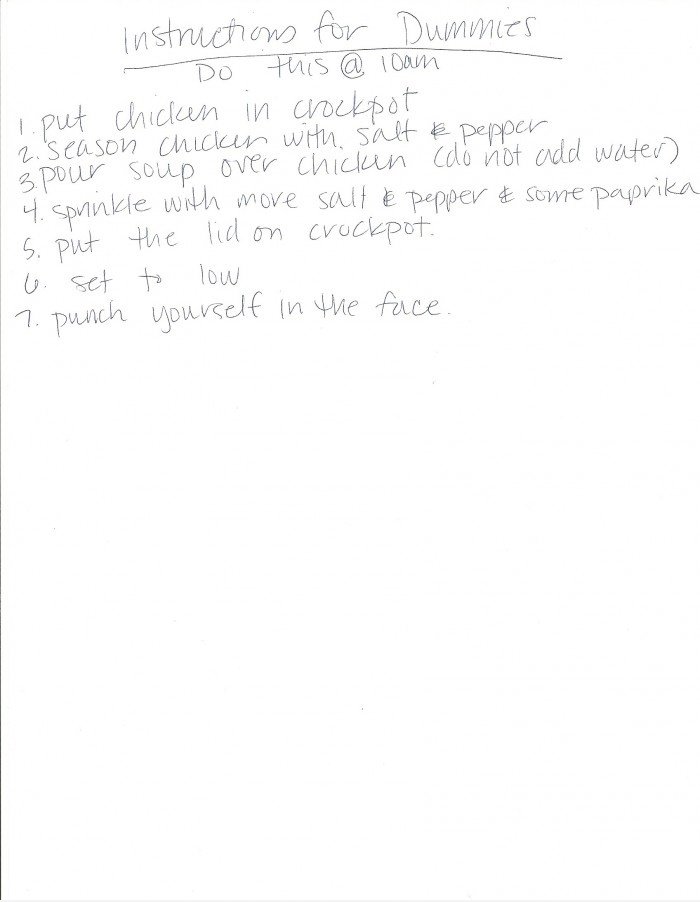 Instructions for Dummies
Do this @ 10am
1. put chicken in crockpot
2. season chicken with salt & pepper
3. pour soup over chicken (do not add water)
4. sprinkle with more salt & pepper & some paprika
5. put the lid on crockpot.
6. set to low
7. punch yourself in the face.